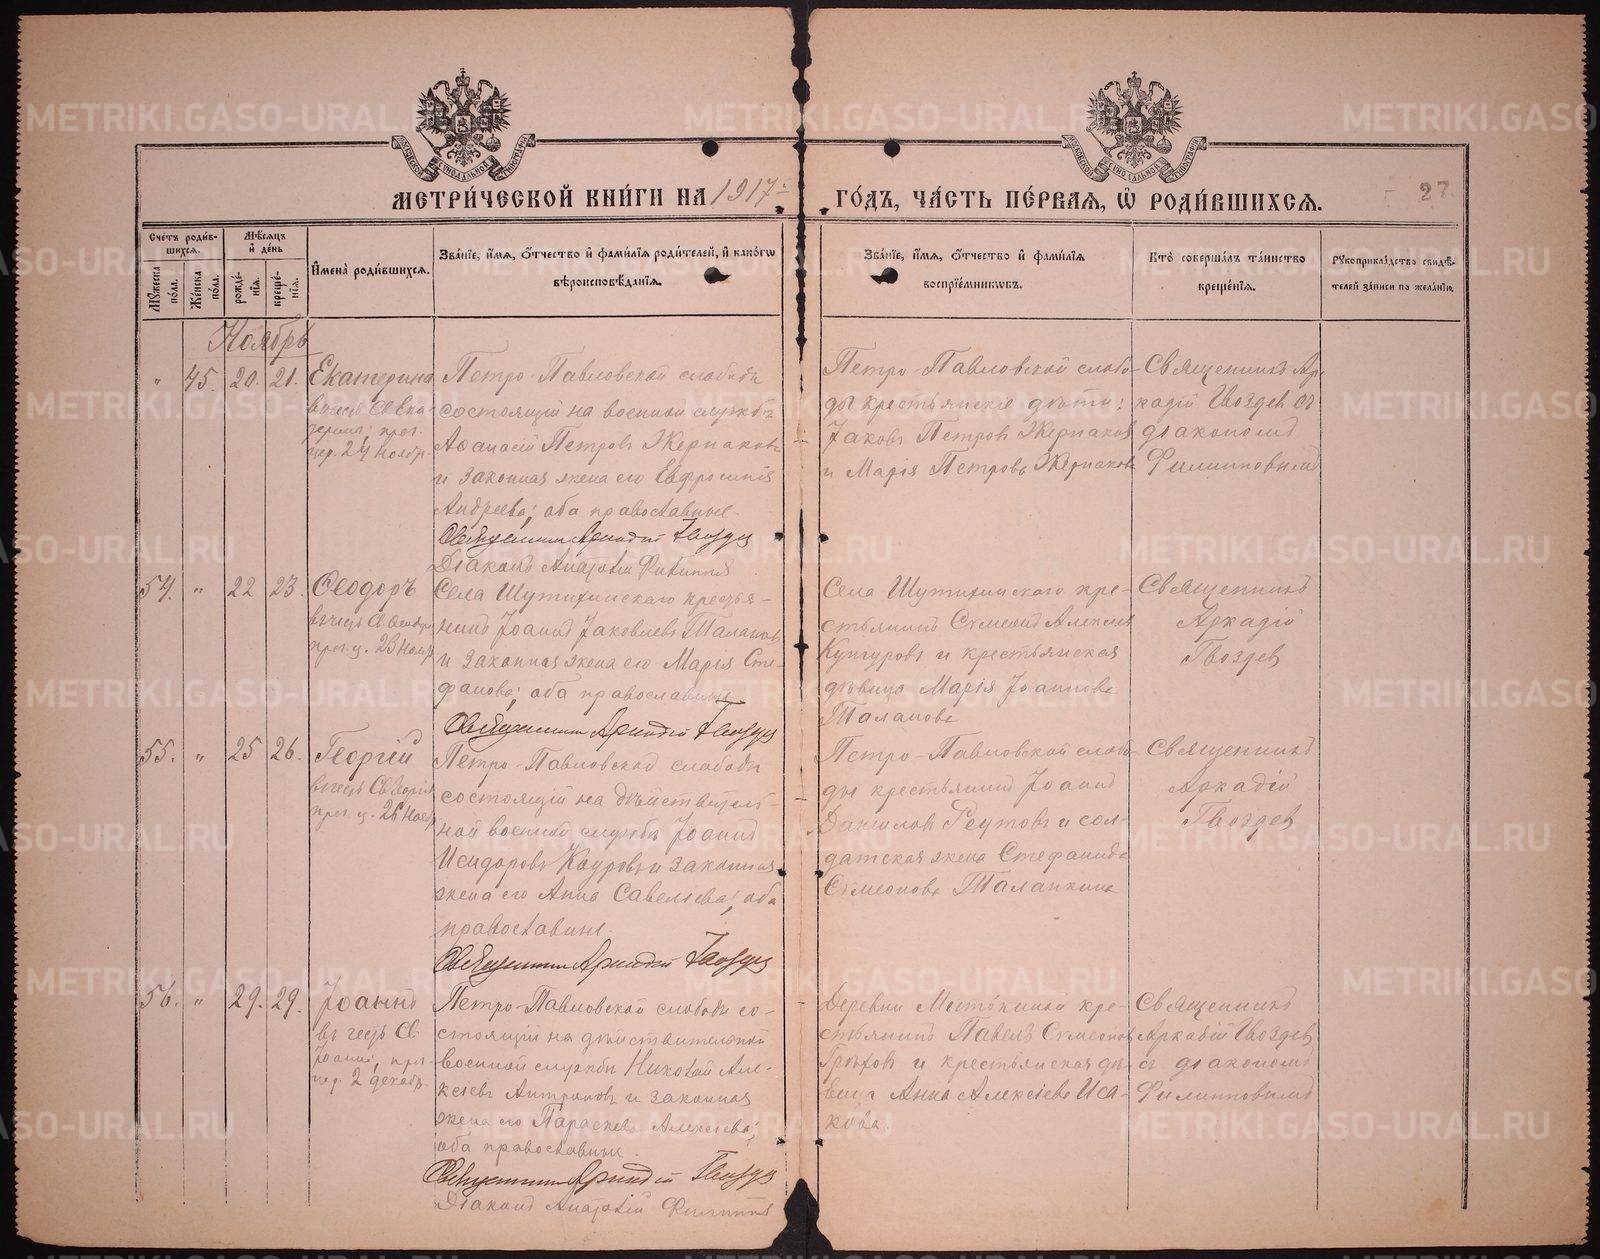 МЕТРИ́ЧЕСКОЙ КНИ́ГИ НА 1917 ГО́ДЪ, ЧА́СТЬ ПЕ́РВАЯ, Ѡ҆ РОДИ́ВШИХСЯ.
27
Сче́тъ роди́в-
шихся.
Му́жеска по́ла.
Же́нска по́ла.
Мѣ́сяцъ и҆ де́нь
рожде́нїя.
креще́нїя.
И҆мена̀ роди́вшихся.
Зва́нїе, и҆́мя, ѻ҆́тчество и҆ фами́лїя роди́телей, и҆ како́гѡ
вѣроисповѣ́данїя.
Зва́нїе, и҆́мя, ѻ҆́тчество и҆ фами́лїя
воспрїе́мникѡвъ.
Кто̀ соверша́лъ та́инство
креще́нїя.
Рукоприкла́дство свидѣ́-
телей за́писи по жела́нїю.
Ноябрь
" 45. 20. 21. Екатерина
въ честь Св. Ека-
24 Ноябр.
Петро-Павловской слободы
состоящій на военной службѣ
Аѳанасій Петровъ Жернаковъ
и законная жена его Евфросинія
Андреева; оба православные.
Священникъ Аркадій Гвоздев
Діаконъ Анатолій Филиппов
Петро-Павловской слобо-
ды крестьянскіе дѣти:
Іаковъ Петровъ Жернаков
и Марія Петрова Жернакова
Священникъ Ар-
кадій Гвоздев съ
діакономъ
Филипповымъ
54. " 22 23. Ѳеодоръ
въ честь Св. Ѳеодора
23 Нояб.
Села Шутихинскаго крестья-
нинъ Іоаннъ Іаковлевъ Талановъ
и законная жена его Марія Сте-
фанова; оба православные
Священникъ Аркадій Гвоздев
Села Шутихинскаго кре-
стьянинъ Сѵмеонъ Алексѣев
Кунгуровъ и крестьянская
дѣвица Марія Іоаннова
Таланова
Священникъ
Аркадій
Гвоздев
55. " 25 26. Георгій
въ честь Св. Георгія
26 Нояб.
Петро-Павловской слободы
состоящій на дѣйствитель-
ной военной службѣ Іоаннъ
Исидоровъ Кауровъ и законная
жена его Анна Савельева; оба
православные.
Священникъ Аркадій Гвоздев
Петро-Павловской слобо-
ды крестьянинъ Іоаннъ
Даниловъ Реутовъ и сол-
датская жена Стефанида
Сѵмеонова Таланкина
Священникъ
Аркадій
Гвоздев
56. " 29. 29. Іоаннъ
въ честь Св.
Іоанна; праз-
2 декабр.
Петро-Павловской слободы со-
стоящій на дѣйствительной
военной службѣ Николай Але-
ксѣевъ Антроповъ и законная
жена его Параскева Алексѣева;
оба православные.
Священникъ Аркадій Гвоздев
Діаконъ Анатолій Филиппов
Деревни кре-
стьянинъ Павелъ Сѵмеонов
Грѣхов и крестьянская дѣ-
вица Анна Алексѣева Иса-
кова.
Священникъ
Аркадій Гвоздев
съ діакономъ
Филипповымъ
METRIKI.GASO-URAL.RU